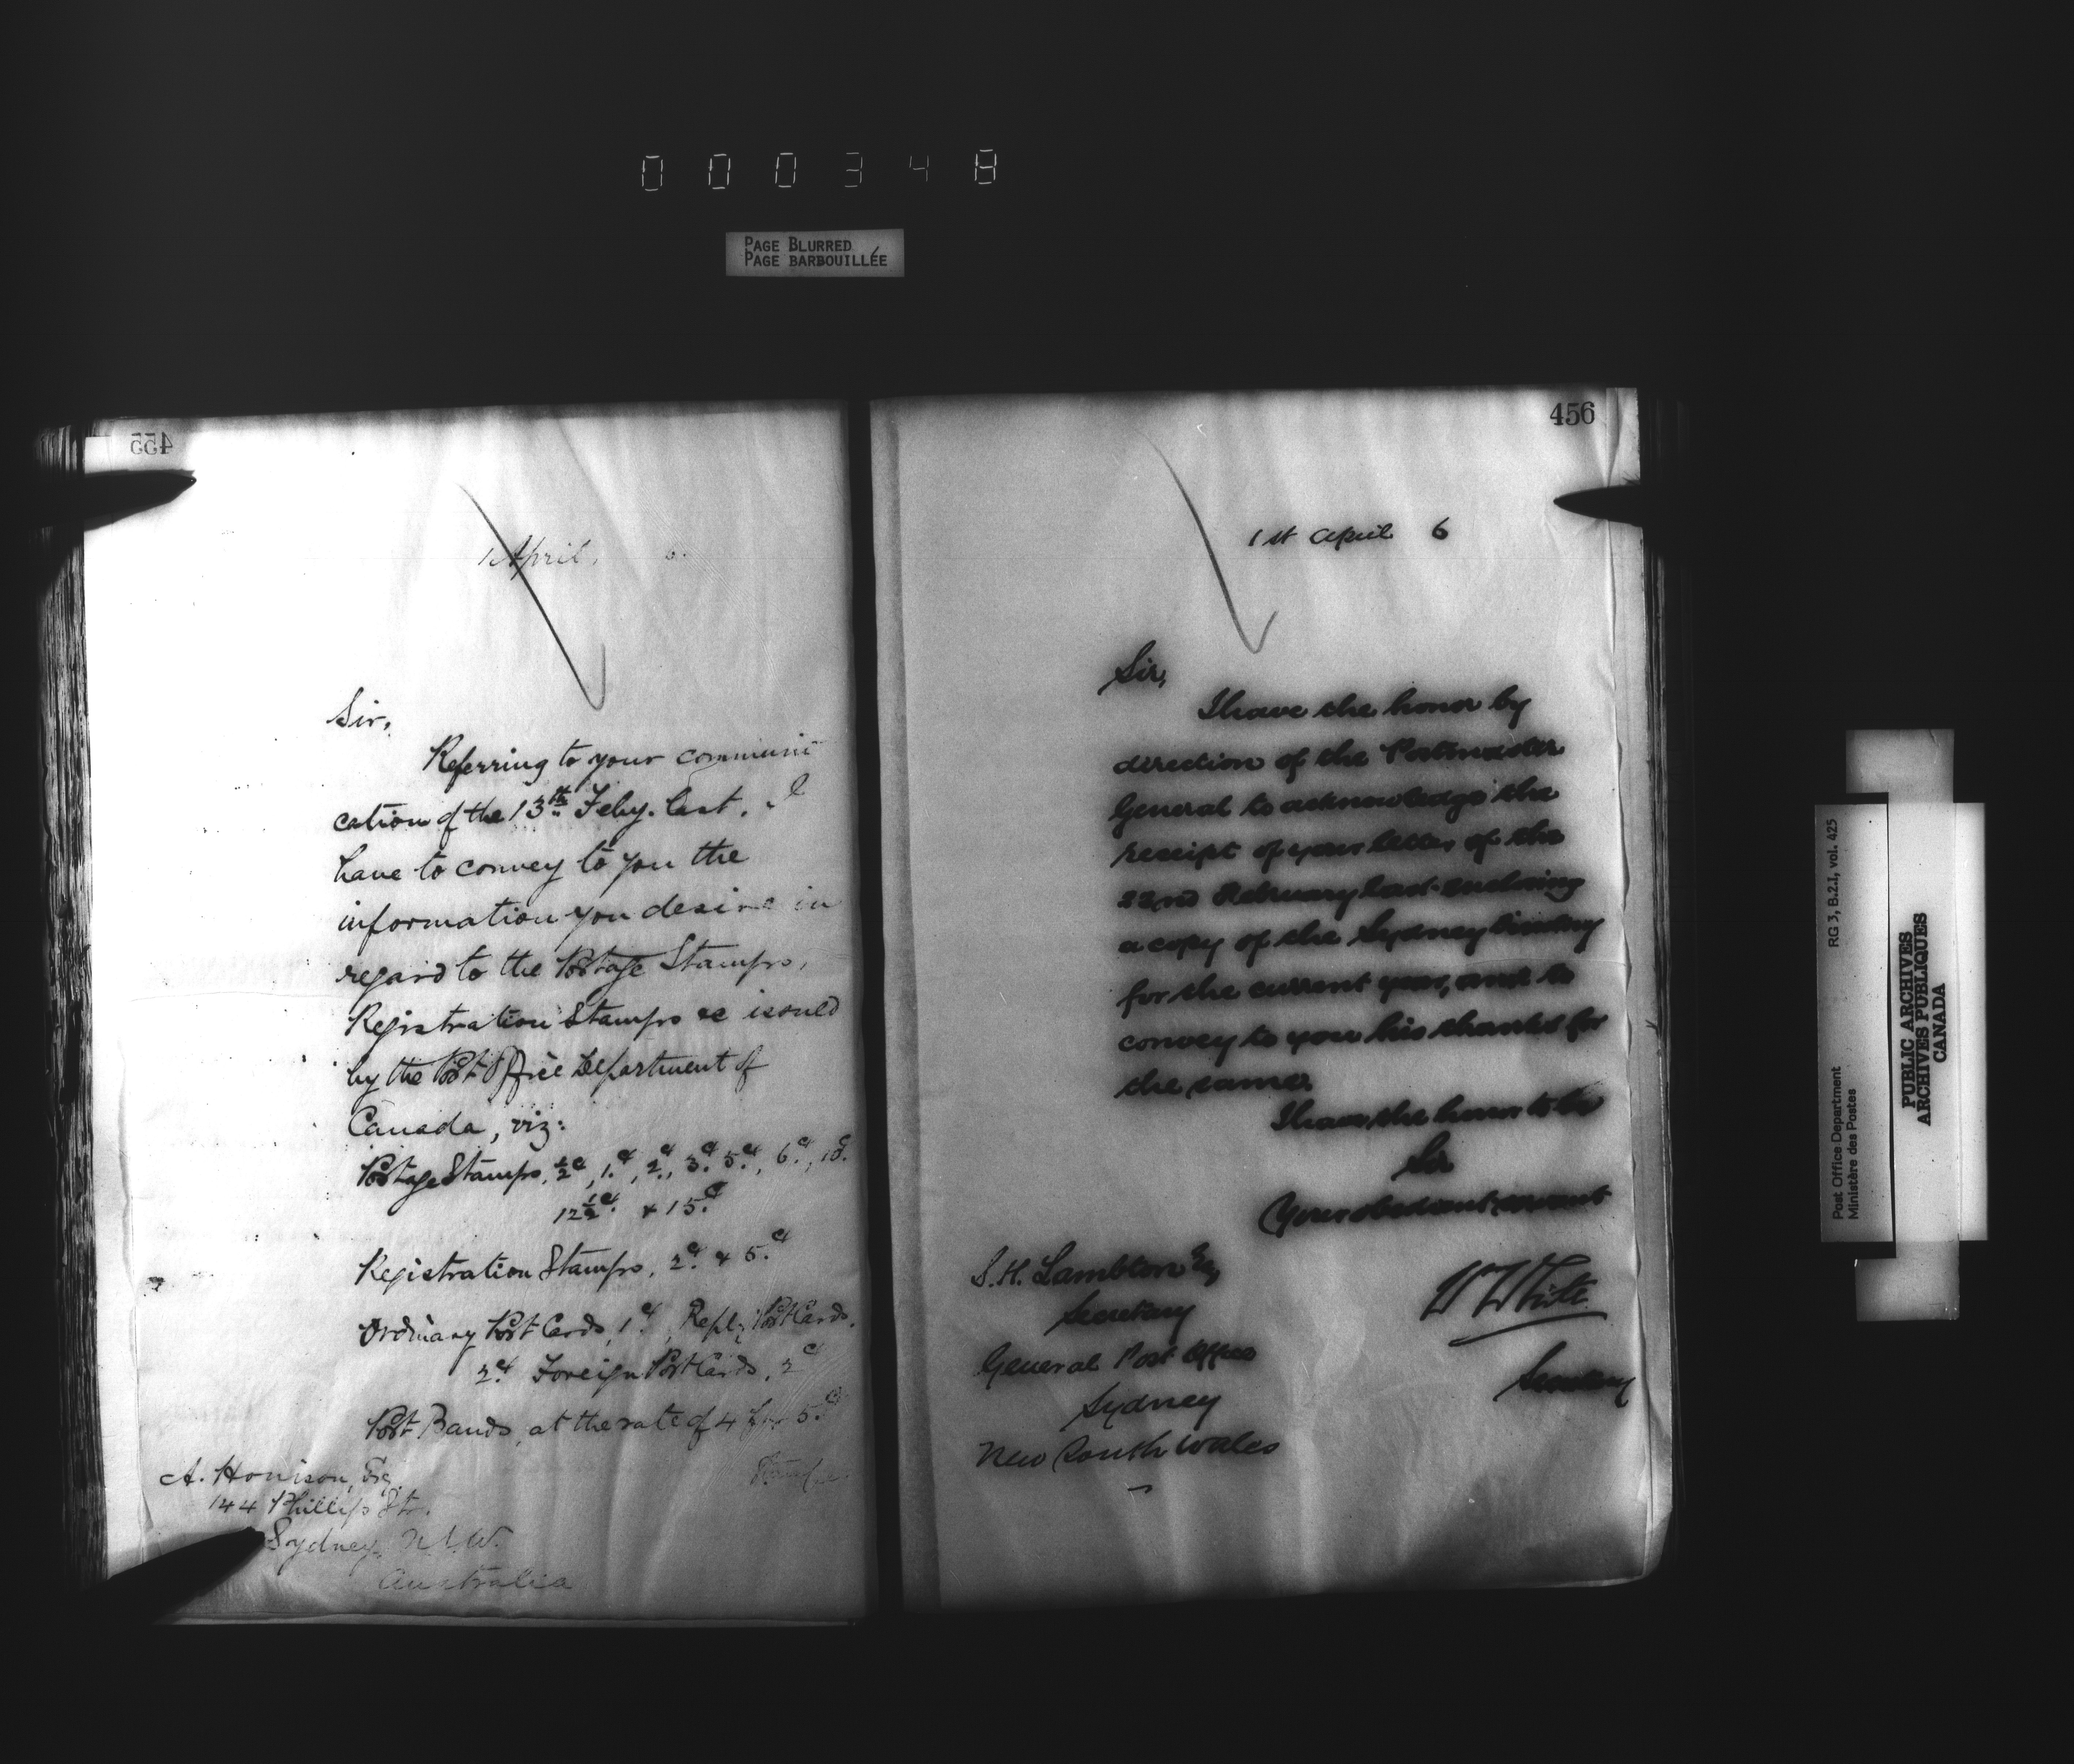 0 0 0 3 4 8
PAGE BLURRED
PAGE BARBOUILLÉE
455
1 April, 6.
Sir,
Referring to your communi
cation of the 13th Feby. last, I
have to convey to you the
information you desire in
regard to the Postage Stamps,
Registration Stamps &c issued
by the Post Office Department of
Canada, viz:
Postage Stamps, ½c, 1c, 2c, 3c, 5c, 6c, 10c.
12½c. & 15c
Registration Stamps, 2c & 5c
Ordinary Post Cards, 1c, Reply Post Cards,
2c Foreign Post Cards, 2c
Post Bands, at the rate of 4 for 5c
A. Honison, Esq.
144 Phillip St.
Sydney, N.S.W.
Australia
456
1st April 6
Sir,
I have the honor by
direction of the Postmaster
General to acknowledge the
receipt of your letter of the
22nd February last enclosing
a copy of the Sydney
for the current year, and to
convey to you his thanks for
the same.
I have the honor to be
Sir
Your obedient servant
W White
Secretary
S. H. Lambton Esq
Secretary
General Post Office
Sydney
New South Wales
RG 3, B.2.1, vol. 425
Post Office Department
Ministère des Postes
PUBLIC ARCHIVES
ARCHIVES PUBLIQUES
CANADA